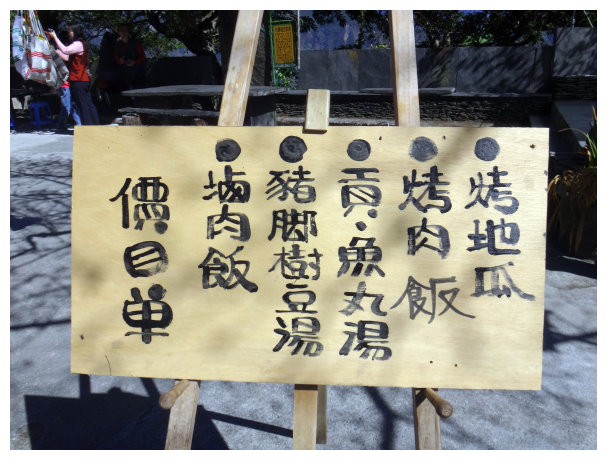 烤地瓜
烤肉飯
貢、魚丸湯
豬脚樹豆湯
滷肉飯
價目单